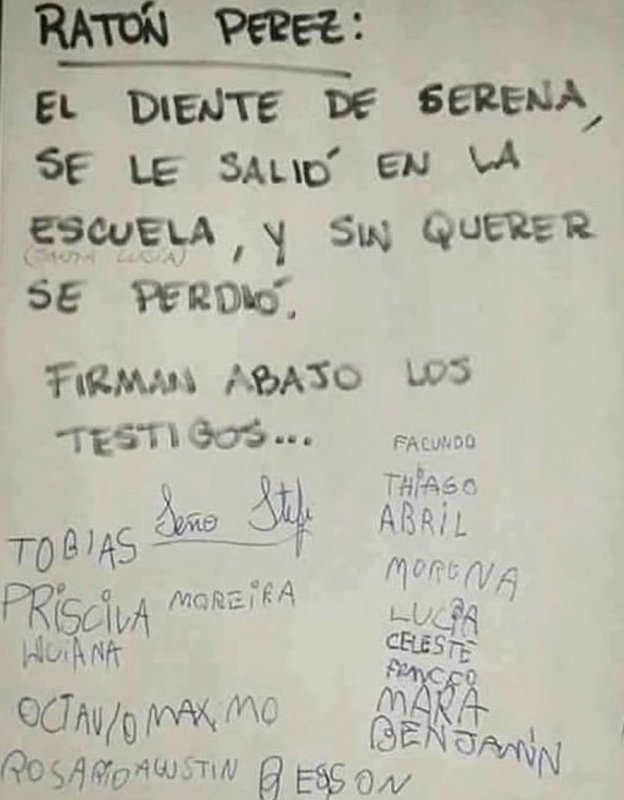 RATÓN PEREZ:
EL DIENTE DE SERENA,
SE LE SALIÓ EN LA
ESCUELA, Y SIN QUERER
(SANTA LUCÍA)
SE PERDIÓ.
FIRMAN ABAJO LOS
TESTIGOS...
FACUNDO
THIAGO
Seño Stefi
ABRIL
TOBIAS
MORENA
PRISCILA MOREIRA
LUCIA
CELESTE
LUCIANA
MARA
OCTAVIO MAXIMO
BENJAMIN
ROSARIO AGUSTIN BESSON